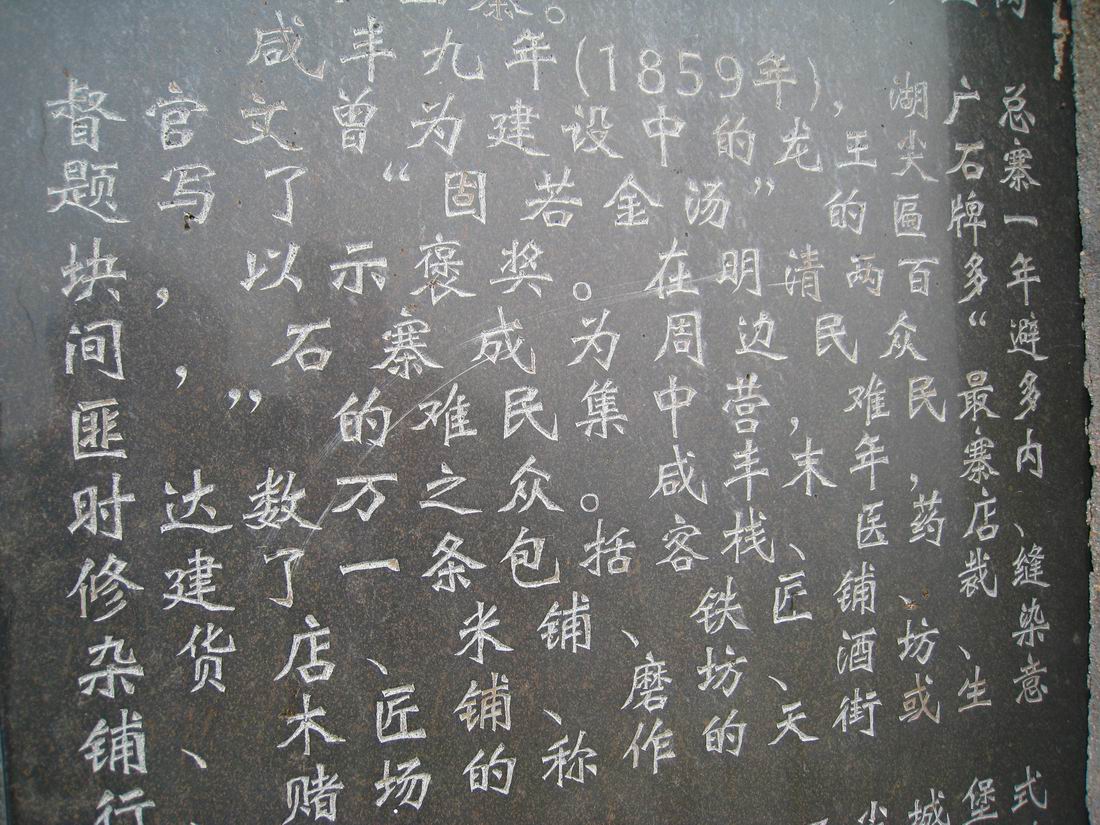 寨。
咸丰九年(1859年),湖广总
督官文曾为建设中的龙王尖石寨
题写了“固若金汤”的匾牌一
块,以示褒奖。在明清两百多年
间,石寨成为周边民众“避
匪”的难民集中营,难民最多
时达数万之众。咸丰末年,寨内
修建了一条包括客栈、医药店、
杂货店、米铺、铁匠铺、裁缝
铺、木匠铺、磨坊、酒坊、染
行、赌场的称作的天街或生意
城堡式